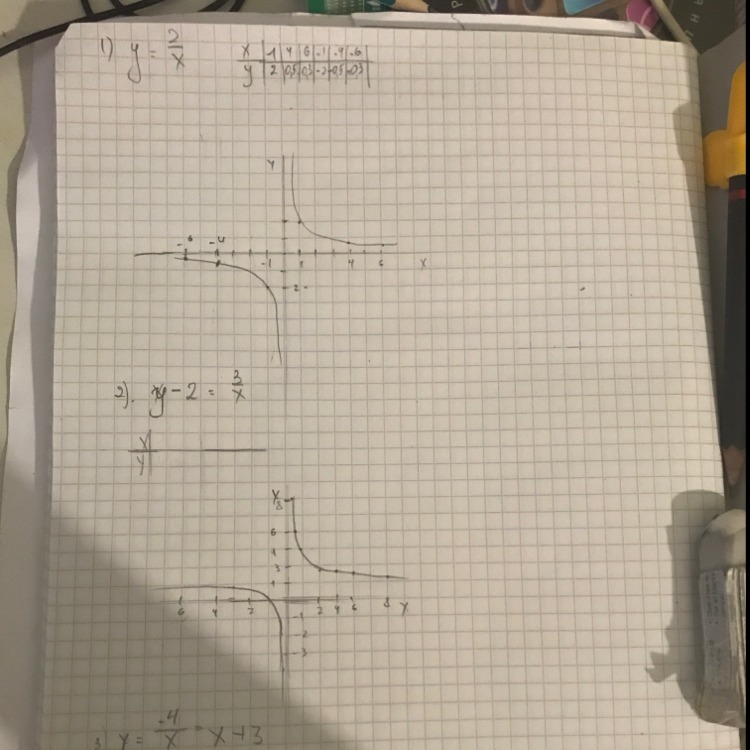 1) y = 2/x
x | 1 | 4 | 6 | -1 | -4 | -6
y | 2 | 0,5 | 0,3 | -2 | -0,5 | -0,3
y
-6 -4 -1 1 4 6 x
2 -
2). y - 2 = 3/x
x
y
y
8
6
4
3
1
6 4 2 2 4 6 8 x
-1
-2
-3
3) y = -4/x - x + 3